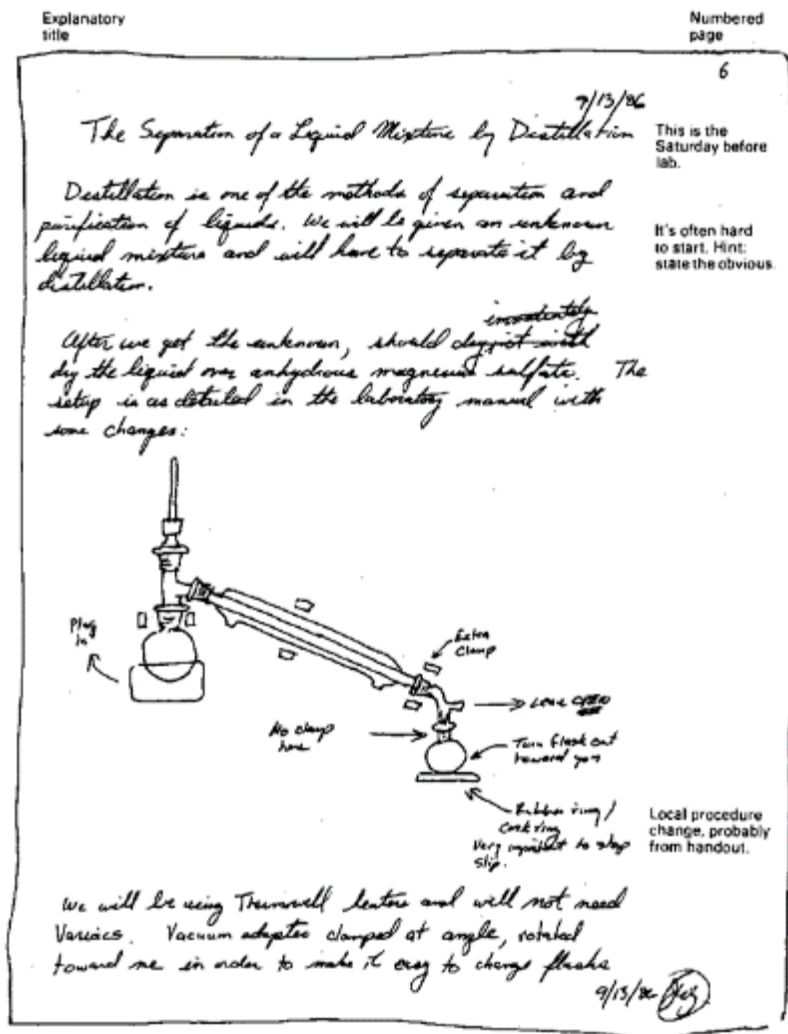 Explanatory
title
Numbered
page
6
9/13/86
The Separation of a Liquid Mixture by Distillation
This is the
Saturday before
lab.
Distillation is one of the methods of separation and
purification of liquids. We will be given an unknown
liquid mixture and will have to separate it by
distillation.
It's often hard
to start. Hint:
state the obvious.
immediately
After we get the unknown, should dry it with
dry the liquid over anhydrous magnesium sulfate. The
setup is as detailed in the laboratory manual with
some changes:
Plug
in
Extra
Clamp
Leave OPEN
No clamp
here
Turn flask out
toward you
Rubber ring /
Cork ring
Very important to stop
slip.
Local procedure
change, probably
from handout.
We will be using Thermwell heaters and will not need
Variacs. Vacuum adapter clamped at angle, rotated
toward me in order to make it easy to change flasks
9/13/86